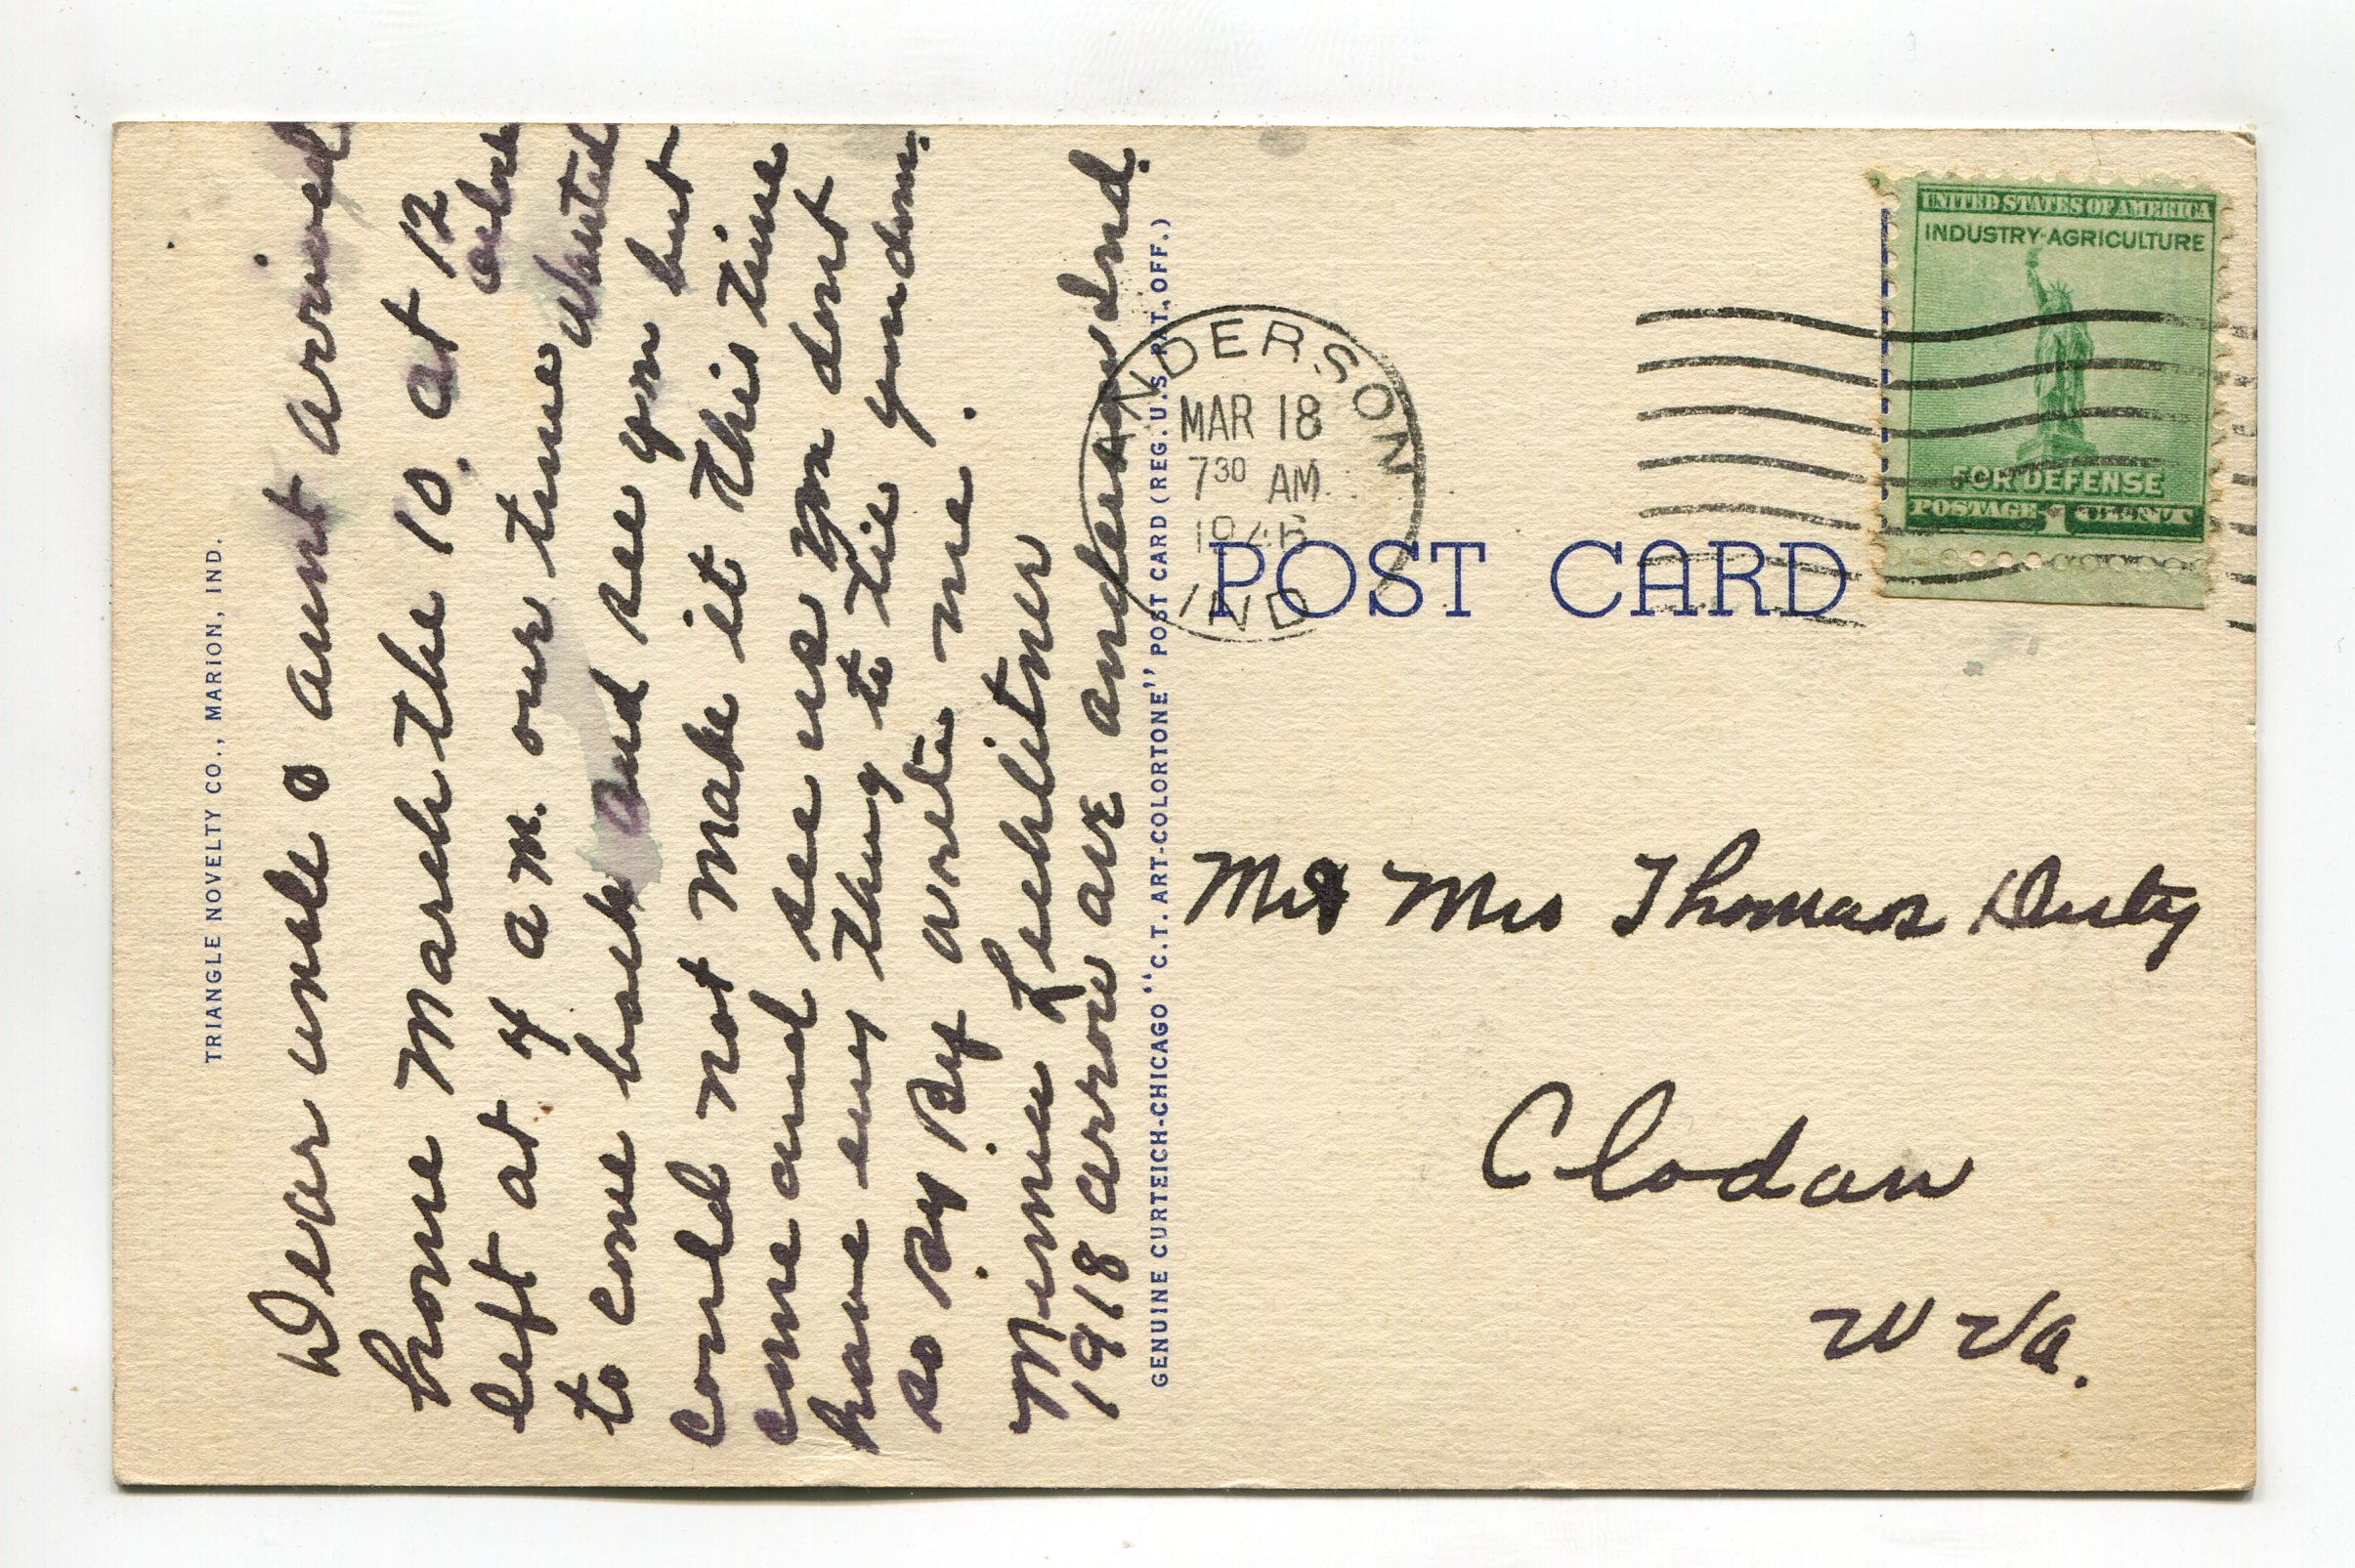 TRIANGLE NOVELTY CO., MARION, IND.
Dear uncle & aunt arrived
home March the 10. at 12
oclock
left at 4 a m. our time wanted
to come back and see you but
could not make it this time
come and see us you dont
have eny thing to tie you down.
so By By write me.
Minnia Lechlitner
1918 arrow ave anderson Ind.
GENUINE CURTEICH-CHICAGO "C.T. ART-COLORTONE" POST CARD (REG. U.S. PAT. OFF.)
ANDERSON
MAR 18
7 30 AM
1946
IND
POST CARD
UNITED STATES OF AMERICA
INDUSTRY·AGRICULTURE
FOR DEFENSE
POSTAGE 1 CENT
Mr & Mrs Thomas Dusty
Clodan
W Va.